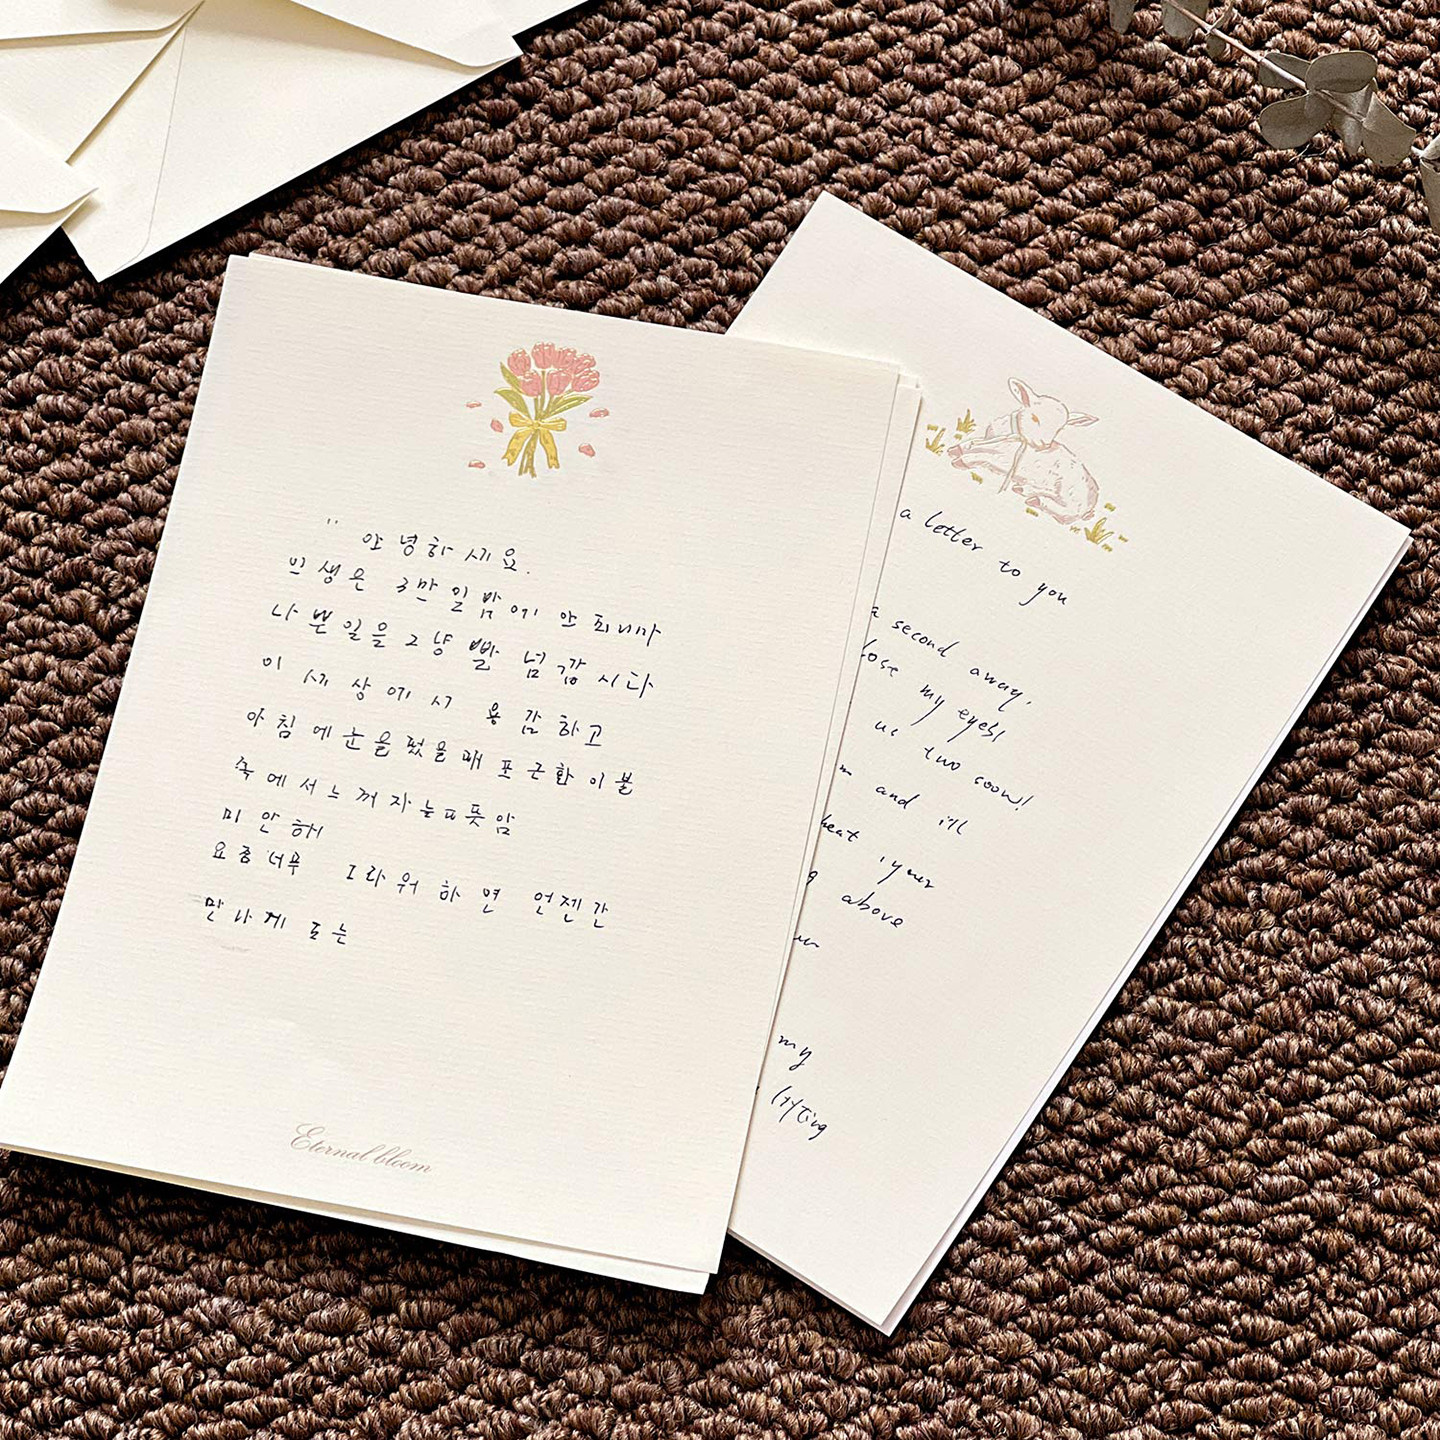 " 안녕하세요.
인생은 3만일밤에 안 되니까
나쁜일을 그냥 빨 넘깁시다
이
세상에서 용감하고
아침에 눈을 떴을때 포근한 이불
속에서 느껴지는 따뜻함
미안해
요즘 너무 도라워하면 언젠간
만나게 되는
Eternal bloom
a letter to you
a second away,
my eyes!
us two soon!
and i'll
above
my